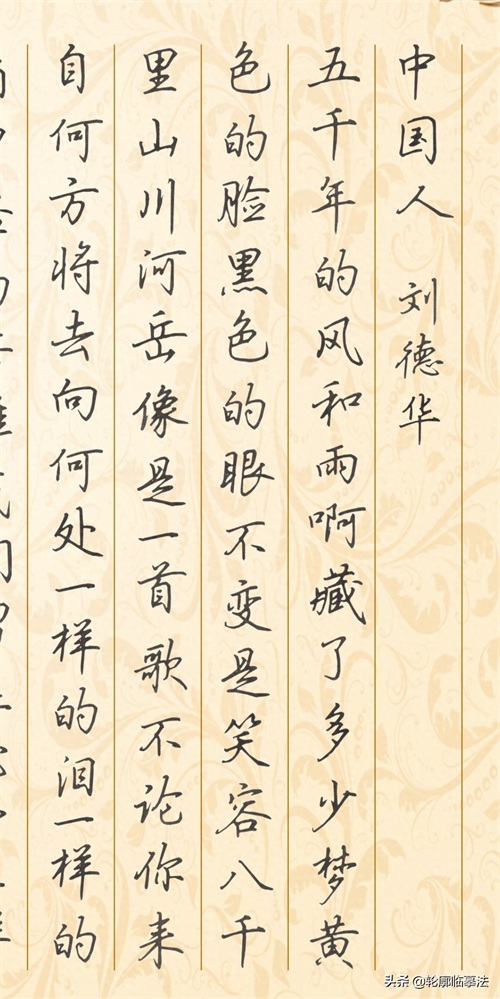 中国人 刘德华
五千年的风和雨啊藏了多少梦黄
色的脸黑色的眼不变是笑容八千
里山川河岳像是一首歌不论你来
自何方将去向何处一样的泪一样的
头条 @轮廓临摹法